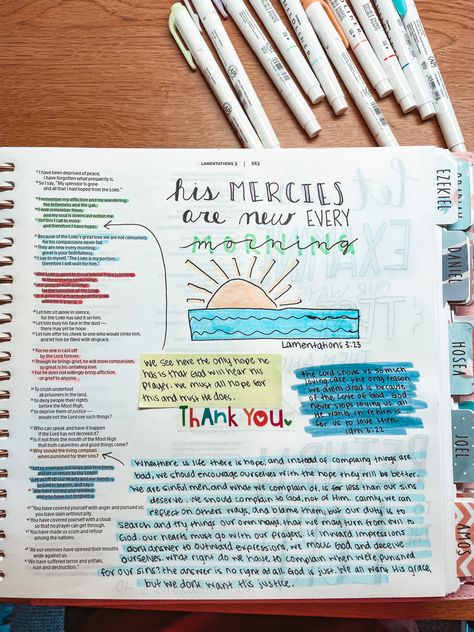 LAMENTATIONS 3 | 663
his MERCIES
are new EVERY
morning
Lamentations 3:23
17 I have been deprived of peace;
I have forgotten what prosperity is.
18 So I say, "My splendor is gone
and all that I had hoped from the LORD."
19 I remember my affliction and my wandering,
the bitterness and the gall.
20 I well remember them,
and my soul is downcast within me.
21 Yet this I call to mind
and therefore I have hope:
22 Because of the LORD's great love we are not consumed,
for his compassions never fail.
23 They are new every morning;
great is your faithfulness.
24 I say to myself, "The LORD is my portion;
therefore I will wait for him."
25 The LORD is good to those whose hope is in him,
to the one who seeks him;
26 it is good to wait quietly
for the salvation of the LORD.
27 It is good for a man to bear the yoke
while he is young.
28 Let him sit alone in silence,
for the LORD has laid it on him.
29 Let him bury his face in the dust—
there may yet be hope.
30 Let him offer his cheek to one who would strike him,
and let him be filled with disgrace.
31 For no one is cast off
by the Lord forever.
32 Though he brings grief, he will show compassion,
so great is his unfailing love.
33 For he does not willingly bring affliction
or grief to anyone.
34 To crush underfoot
all prisoners in the land,
35 to deny people their rights
before the Most High,
36 to deprive them of justice—
would not the Lord see such things?
37 Who can speak and have it happen
if the Lord has not decreed it?
38 Is it not from the mouth of the Most High
that both calamities and good things come?
39 Why should the living complain
when punished for their sins?
40 Let us examine our ways and test them,
and let us return to the LORD.
41 Let us lift up our hearts and our hands
to God in heaven, and say:
42 "We have sinned and rebelled
and you have not forgiven.
43 "You have covered yourself with anger and pursued us;
you have slain without pity.
44 You have covered yourself with a cloud
so that no prayer can get through.
45 You have made us scum and refuse
among the nations.
46 "All our enemies have opened their mouths
wide against us.
47 We have suffered terror and pitfalls,
ruin and destruction."
We see here the only hope he
has is that God will hear his
prayer. we must all hope for
this and must He does.
THANK YOU.
the Lord shows us so much
loving care. The only reason
we arent dead is because
of the Love of God. God
never stops loving us. all
He wants in return is
for us to love Him.
Lam 3:22
Whathere is life there is hope, and instead of complaing things are
bad, we should encourage ourselves with the hope they will be better.
we are sinful men, and what we complain of, is far less than our sins
deserve. we should complain to God, not of Him. calmly, we can
reflect on others ways, and blame them, but our duty is to
search and try things our own ways, that we may turn from evil to
God. our hearts must go with our prayers. if inward impressions
dont answer to outward expressions, we mock God and deceive
ourselves. what right do we have to complain when we're punished
for our sins? the answer is no right at all. God is just. we all want his grace,
but we dont want his justice.
EZEKIEL
DANIEL
HOSEA
JOEL
AMOS